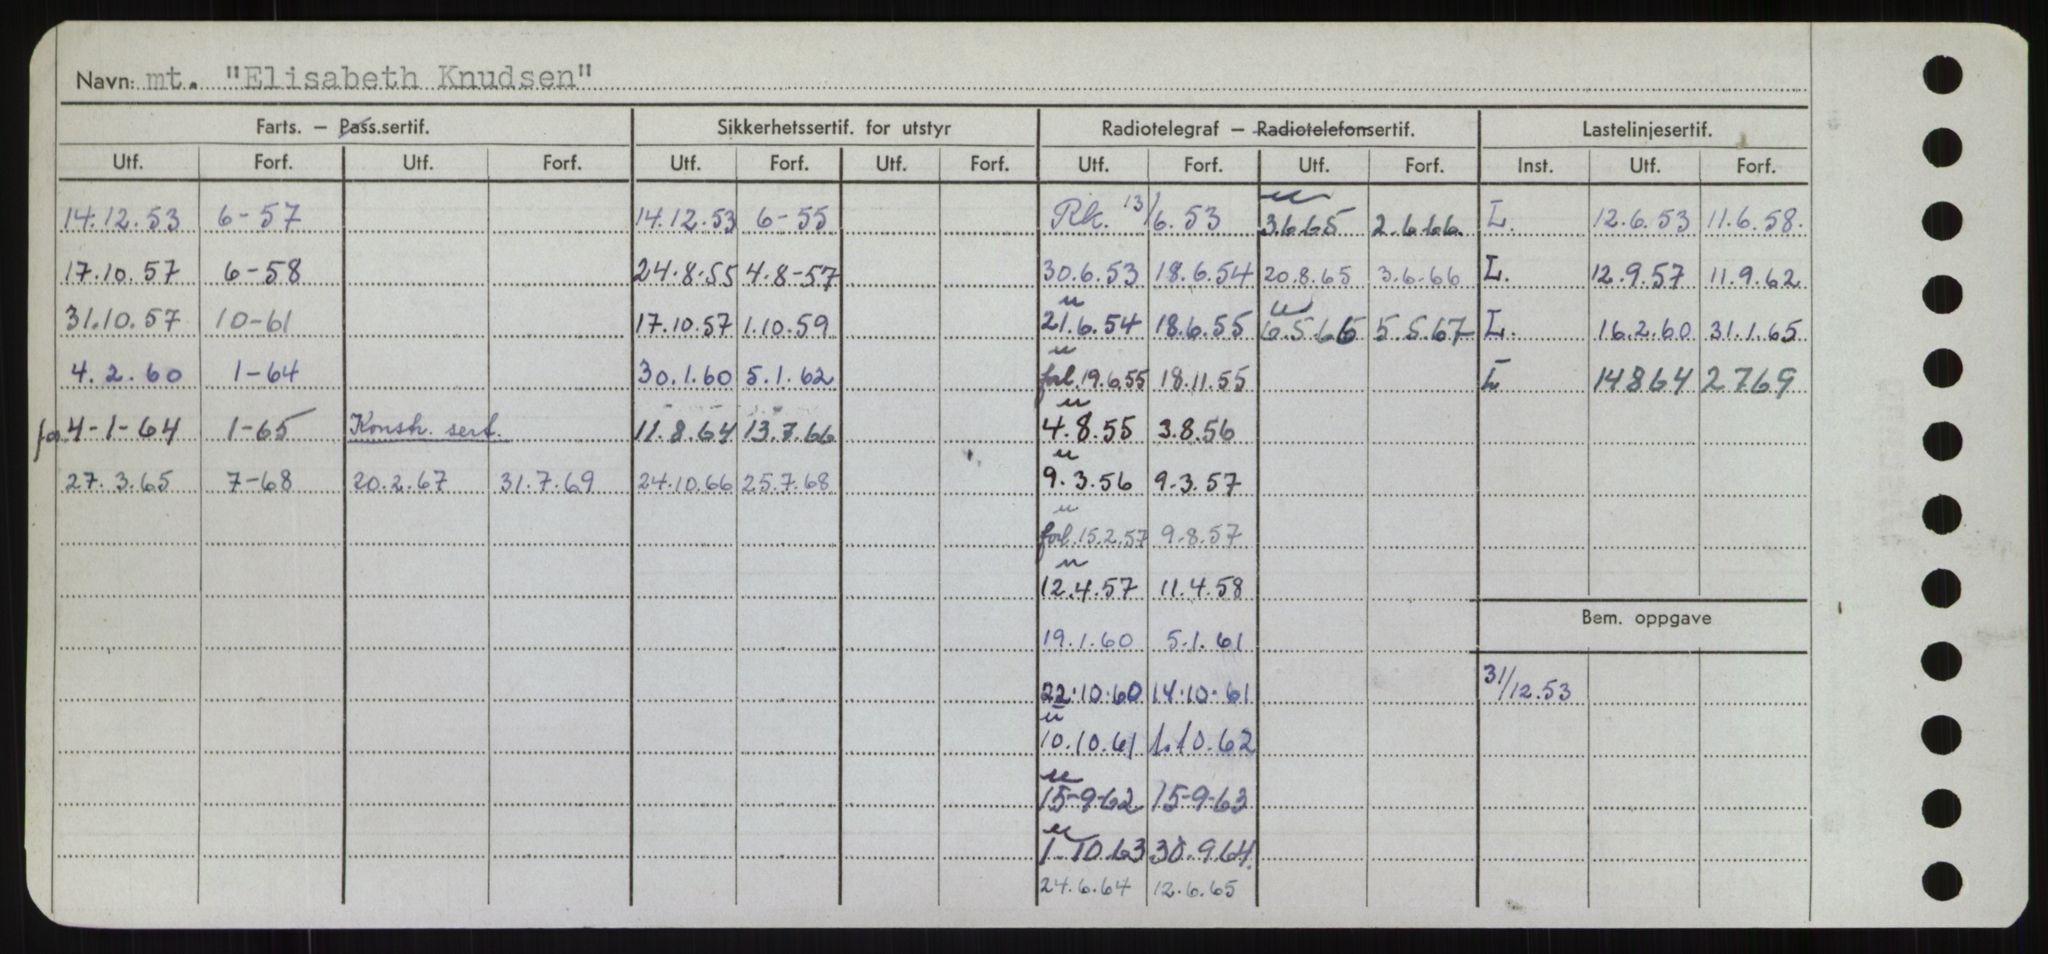 Navn: mt. "Elisabeth Knudsen"
Farts. – Pass.sertif. Sikkerhetssertif. for utstyr Radiotelegraf – Radiotelefonsertif. Lastelinjesertif.
Utf. Forf. Utf. Forf. Utf. Forf. Utf. Forf. Utf. Forf. Utf. Forf. Inst. Utf. Forf.
u
14.12.53 6-57 14.12.53 6-55 Rk. 13/6.53 3.6.65 2.6.66. L. 12.6.53 11.6.58.
17.10.57 6-58 24.8.55 4.8-57 30.6.53 18.6.54 20.8.65 3.6.66 L. 12.9.57 11.9.62
u u
31.10.57 10-61 17.10.57 1.10.59 21.6.54 18.6.55 6.5.66 5.5.67 L. 16.2.60 31.1.65
u
4.2.60 1-64 30.1.60 5.1.62 forl. 19.6.55 18.11.55 L 14864 2769
u
for 4-1-64 1-65 Konstr. sert. 11.8.64 13.7.66 4.8.55 3.8.56
u
27.3.65 7-68 20.2.67 31.7.69 24.10.66 25.7.68 9.3.56 9.3.57
u
forl. 15.2.57 9.8.57
u
12.4.57 11.4.58
Bem. oppgave
19.1.60 5.1.61
22.10.60 14.10.61 31/12.53
u
10.10.61 1.10.62
u
15-9-62 15-9-63
u
1.10.63 30.9.64.
24.6.64 12.6.65